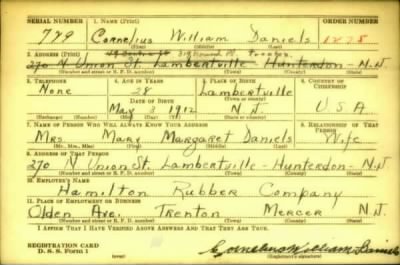 SERIAL NUMBER 1. NAME (Print) ORDER NUMBER
789 Cornelius William Daniels 1275
(First) (Middle) (Last)
2. ADDRESS (Print) Trenton
270 N Union St. Lambertville Hunterdon - N.J.
(Number and street or R. F. D. number) (Town) (County) (State)
3. TELEPHONE 4. AGE IN YEARS 5. PLACE OF BIRTH 6. COUNTRY OF CITIZENSHIP
None 28 Lambertville
DATE OF BIRTH (Town or county)
May 3 1912 N.J. U.S.A.
(Exchange) (Number) (Mo.) (Day) (Yr.) (State or country)
7. NAME OF PERSON WHO WILL ALWAYS KNOW YOUR ADDRESS 8. RELATIONSHIP OF THAT PERSON
Mrs. Mary Margaret Daniels Wife
(Mr., Mrs., Miss) (First) (Middle) (Last)
9. ADDRESS OF THAT PERSON
270 N Union St. Lambertville - Hunterdon - N.J.
(Number and street or R. F. D. number) (Town) (County) (State)
10. EMPLOYER'S NAME
Hamilton Rubber Company
11. PLACE OF EMPLOYMENT OR BUSINESS
Olden Ave. Trenton Mercer N.J.
(Number and street or R. F. D. number) (Town) (County) (State)
I AFFIRM THAT I HAVE VERIFIED ABOVE ANSWERS AND THAT THEY ARE TRUE.
REGISTRATION CARD
D. S. S. Form 1 Cornelius William Daniels